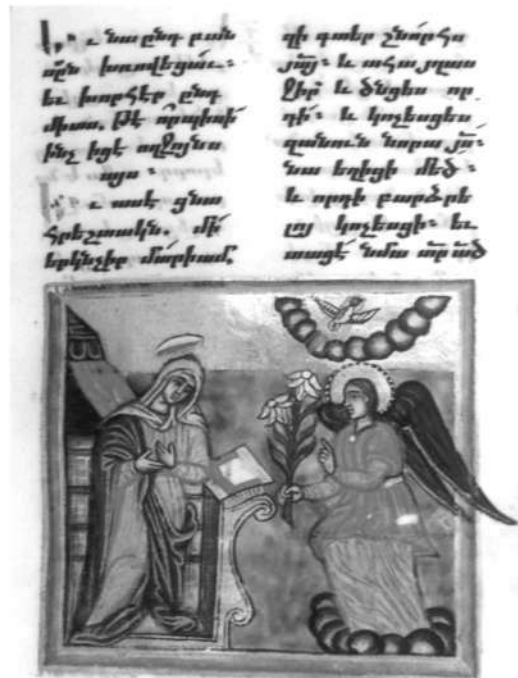 Եւ նա ընդ բան
սն խռովեցաւ։
եւ խորհէր ընդ
միտս. թէ որպիսի
ինչ իցէ ողջոյնս
այս։
Եւ ասէ ցնա
հրեշտակն. մի՛
երկնչիր մարիամ.
զի գտեր շնորհս
յա՟յ։ և ահա յղաս
ջիր և ծնցես որ
դի։ և կոչեսցես
զանուն նորա յս՟։
նա եղիցի մեծ։
և որդի բարձրե
լոյ կոչեսցի։ եւ
տացէ նմա տ՟ր ա՟ծ